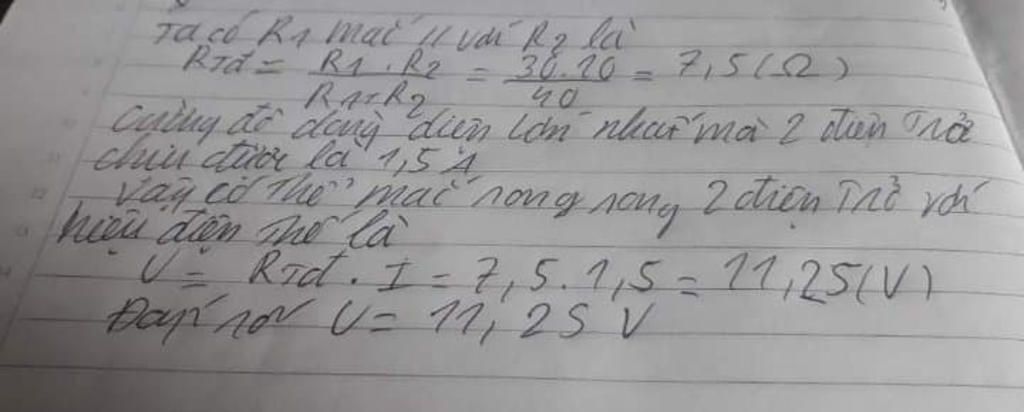 Ta có R1 mắc // với R2 là
RTđ = R1 . R2 / R1+R2 = 30.10 / 40 = 7,5 (Ω)
Cường độ dòng điện lớn nhất mà 2 điện trở
chịu được là 1,5 A
Vậy có thể mắc song song 2 điện trở với
hiệu điện thế là
U = RTđ . I = 7,5 . 1,5 = 11,25 (V)
Đáp số U = 11,25 V